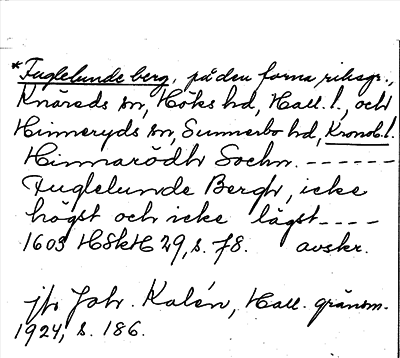 *Fuglelunde berg, på den forna riksgr.,
Knäreds sn, Höks hd, Hall. l., och
Hinneryds sn, Sunnerbo hd, Kronob. l.
Hinnarödh Sochn. ------
Fuglelunde Bergh, icke
högst och icke lägst----
1603 HSkH 29, s. 78. avskr.
jfr Joh. Kalén, Hall. gränsm.
1924, s. 186.